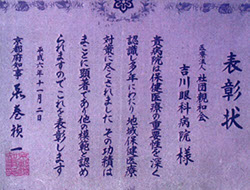 表彰状
医療法人 社団親和会
吉川眼科病院 様
貴病院は保健医療の重要性を深く
認識し多年にわたり地域保健医療
対策に尽くされました その功績は
まことに顕著であり他の模範と認め
られますのでこれを表彰します
平成六年十一月二日
京都府知事 荒巻禎一